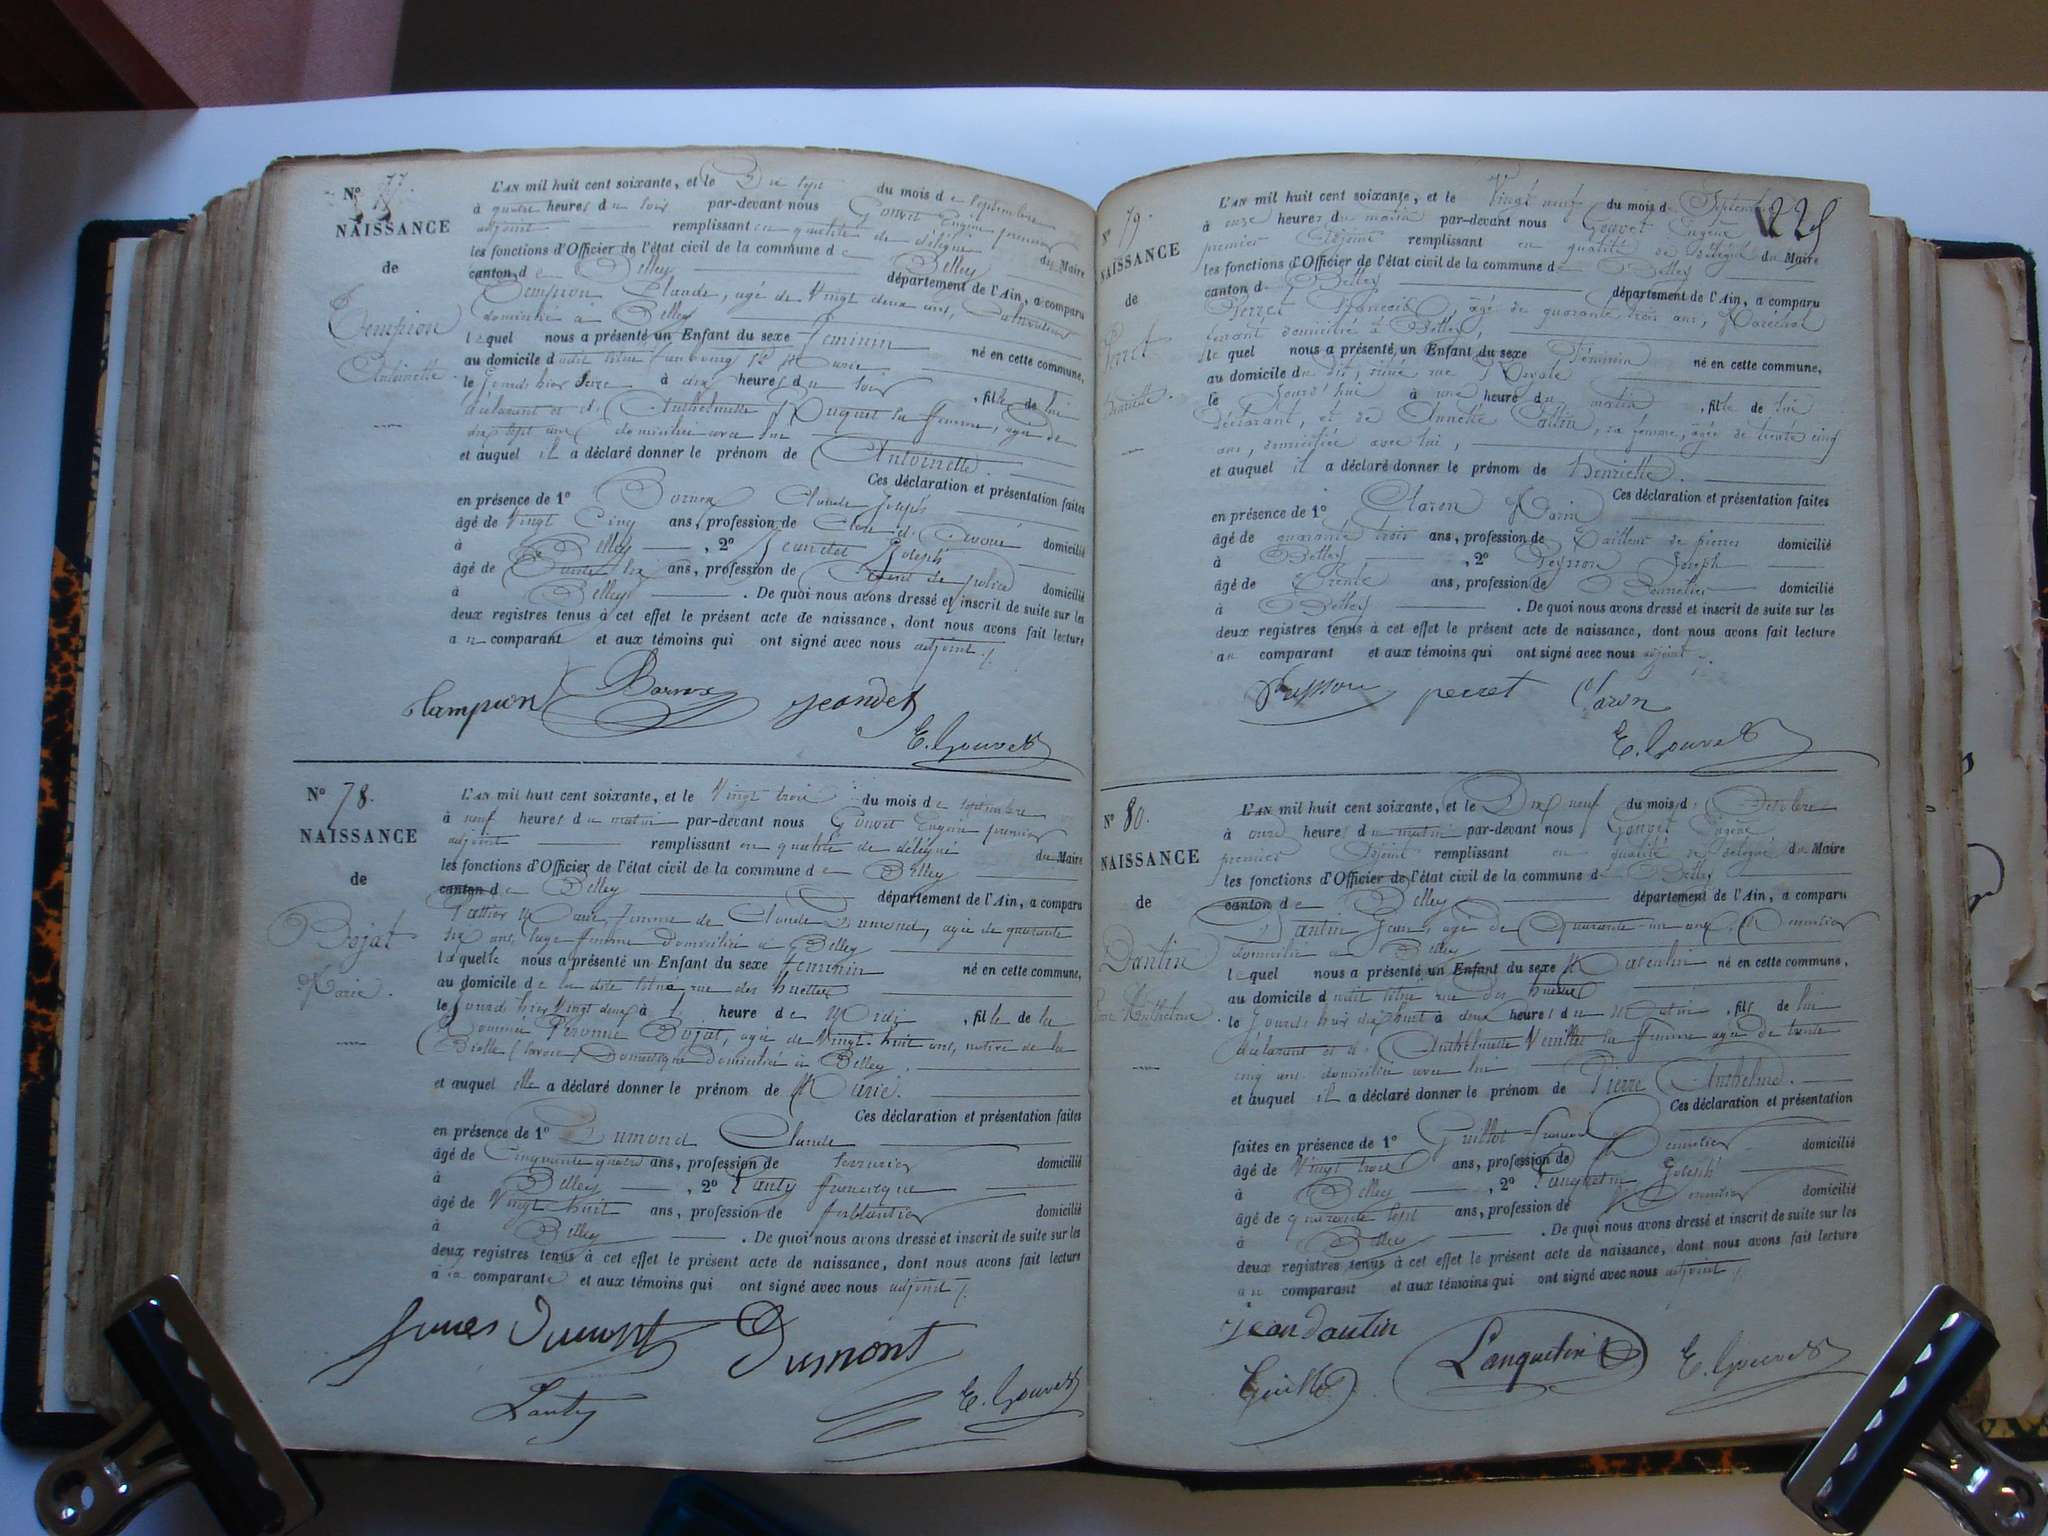 N° 77.
NAISSANCE
de
Antoinette.
L'AN mil huit cent soixante, et le Dix sept du mois de septembre
à quatre heures du soir par-devant nous Gouvet Eugène premier
adjoint remplissant en qualité de délégué du Maire
les fonctions d'Officier de l'état civil de la commune de Belley
canton de Belley département de l'Ain, a comparu
Claude, agé de Vingt deux ans, Cultivateur
domicilié à Belley
lequel nous a présenté un Enfant du sexe féminin né en cette commune,
au domicile dudit situé faubourg St
le jourd'hier à dix heures du soir, fille de lui
déclarant et d'Anthelmette Huguet sa femme, agée de
dix sept ans domiciliée avec lui
et auquel il a déclaré donner le prénom de Antoinette.
Ces déclaration et présentation faites
en présence de 1° Claude Joseph
âgé de Vingt Cinq ans, profession de Clerc d'Avoué domicilié
à Belley, 2° Jeandet Joseph
âgé de ans, profession de de police domicilié
à Belley. De quoi nous avons dressé et inscrit de suite sur les
deux registres tenus à cet effet le présent acte de naissance, dont nous avons fait lecture
au comparant et aux témoins qui ont signé avec nous adjoint ./.
jeandet
E. Gouvet
N° 78.
NAISSANCE
de
Bojat
Marie.
L'AN mil huit cent soixante, et le Vingt trois du mois de septembre
à neuf heures du matin par-devant nous Gouvet Eugène premier
adjoint remplissant en qualité de délégué du Maire
les fonctions d'Officier de l'état civil de la commune de Belley
canton de Belley département de l'Ain, a comparu
Marie, femme de Claude Dumond, agée de quarante
six ans, sage femme domiciliée à Belley
laquelle nous a présenté un Enfant du sexe féminin né en cette commune,
au domicile de la dite située rue des
le jourd'hier Vingt deux à 1 heure de Midi, fille de la
nommée Péronne Bojat, agée de Vingt-huit ans, native de la
Biolle (Savoie) Domestique domiciliée à Belley.
et auquel elle a déclaré donner le prénom de Marie.
Ces déclaration et présentation faites
en présence de 1° Dumond Claude
âgé de Cinquante quatre ans, profession de serrurier domicilié
à Belley, 2° Lanty françois
âgé de Vingt huit ans, profession de ferblantier domicilié
à Belley. De quoi nous avons dressé et inscrit de suite sur les
deux registres tenus à cet effet le présent acte de naissance, dont nous avons fait lecture
à la comparante et aux témoins qui ont signé avec nous adjoint ./.
Dumont Dumont
Lanty
E. Gouvet
225
N° 79.
NAISSANCE
de
Perret
henriette.
L'AN mil huit cent soixante, et le Vingt neuf du mois de Septembre
à onze heures du matin par-devant nous Gouvet Eugène
premier Adjoint remplissant en qualité de Délégué du Maire
les fonctions d'Officier de l'état civil de la commune de Belley
canton de Belley département de l'Ain, a comparu
Perret françois, âgé de quarante trois ans, Maréchal
ferrant domicilié à Belley,
lequel nous a présenté un Enfant du sexe Féminin né en cette commune,
au domicile du dit, situé rue Royale
le jourd'hui à une heure du matin, fille de lui
déclarant, et de Annette Cattin, sa femme, âgée de trente cinq
ans, domiciliée avec lui,
et auquel il a déclaré donner le prénom de henriette.
Ces déclaration et présentation faites
en présence de 1° Claron Marin
âgé de quarante trois ans, profession de Tailleur de pierres domicilié
à Belley, 2° Peysson Joseph
âgé de Trente ans, profession de domicilié
à Belley. De quoi nous avons dressé et inscrit de suite sur les
deux registres tenus à cet effet le présent acte de naissance, dont nous avons fait lecture
au comparant et aux témoins qui ont signé avec nous adjoint ./.
Peysson perret Claron
E. Gouvet
N° 80.
NAISSANCE
de
Dantin
Pierre Anthelme.
L'AN mil huit cent soixante, et le Dix neuf du mois d'Octobre
à onze heures du matin par-devant nous Gouvet Eugène
premier Adjoint remplissant en qualité de délégué du Maire
les fonctions d'Officier de l'état civil de la commune de Belley
canton de Belley département de l'Ain, a comparu
Dantin Jean, agé de Quarante-un ans, Menuisier
domicilié à Belley
lequel nous a présenté un Enfant du sexe Masculin né en cette commune,
au domicile dudit situé rue des
le jourd'hier dix huit à deux heures du Matin, fils de lui
déclarant et d'Anthelmette Veuillet sa femme agée de trente
cinq ans domiciliée avec lui
et auquel il a déclaré donner le prénom de Pierre Anthelme.
Ces déclaration et présentation
faites en présence de 1° Guillot françois Menuisier domicilié
âgé de Vingt trois ans, profession de
à Belley, 2° Languetin Joseph
âgé de quarante sept ans, profession de Menuisier domicilié
à Belley. De quoi nous avons dressé et inscrit de suite sur les
deux registres tenus à cet effet le présent acte de naissance, dont nous avons fait lecture
au comparant et aux témoins qui ont signé avec nous adjoint ./.
Jean dantin
Guillot
Languetin
E. Gouvet